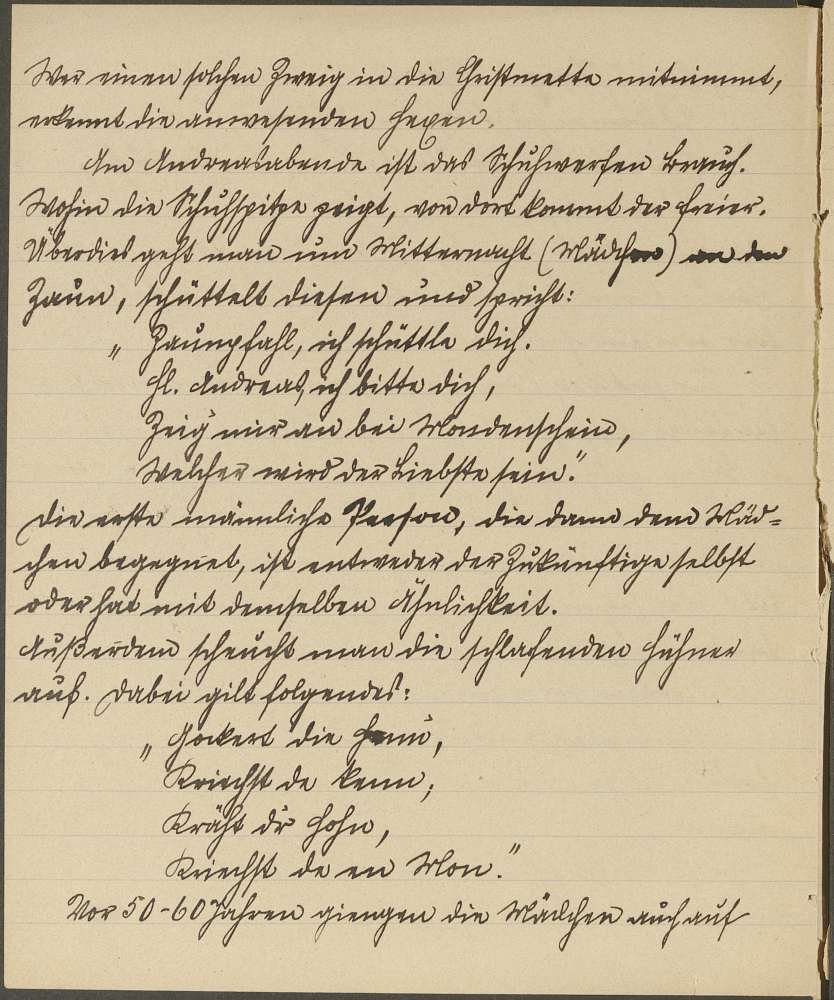 Wer einen solchen Zweig in die Christmette mitnimmt,
erkennt die anwesenden Hexen.
Am Andreasabende ist das Schuhwerfen Brauch.
Wohin die Schuhspitze zeigt, von dort kommt der Freier.
Überdies geht man um Mitternacht (Mädchen) an den
Zaun, schüttelt diesen und spricht:
„Zaunpfahl, ich schüttle dich.
Hl. Andreas, ich bitte dich,
Zeig mir an bei Mondenschein,
Welcher wird der Liebste sein."
Die erste männliche Person, die dann dem Mäd-
chen begegnet, ist entweder der Zukünftige selbst
oder hat mit demselben Ähnlichkeit.
Außerdem scheucht man die schlafenden Hühner
auf. Dabei gilt folgendes:
„Gackert die Henn,
Kriechst de kenn;
Kräht dr Hohn,
Kriechst de en Mon."
Vor 50-60 Jahren giengen die Mädchen auch auf